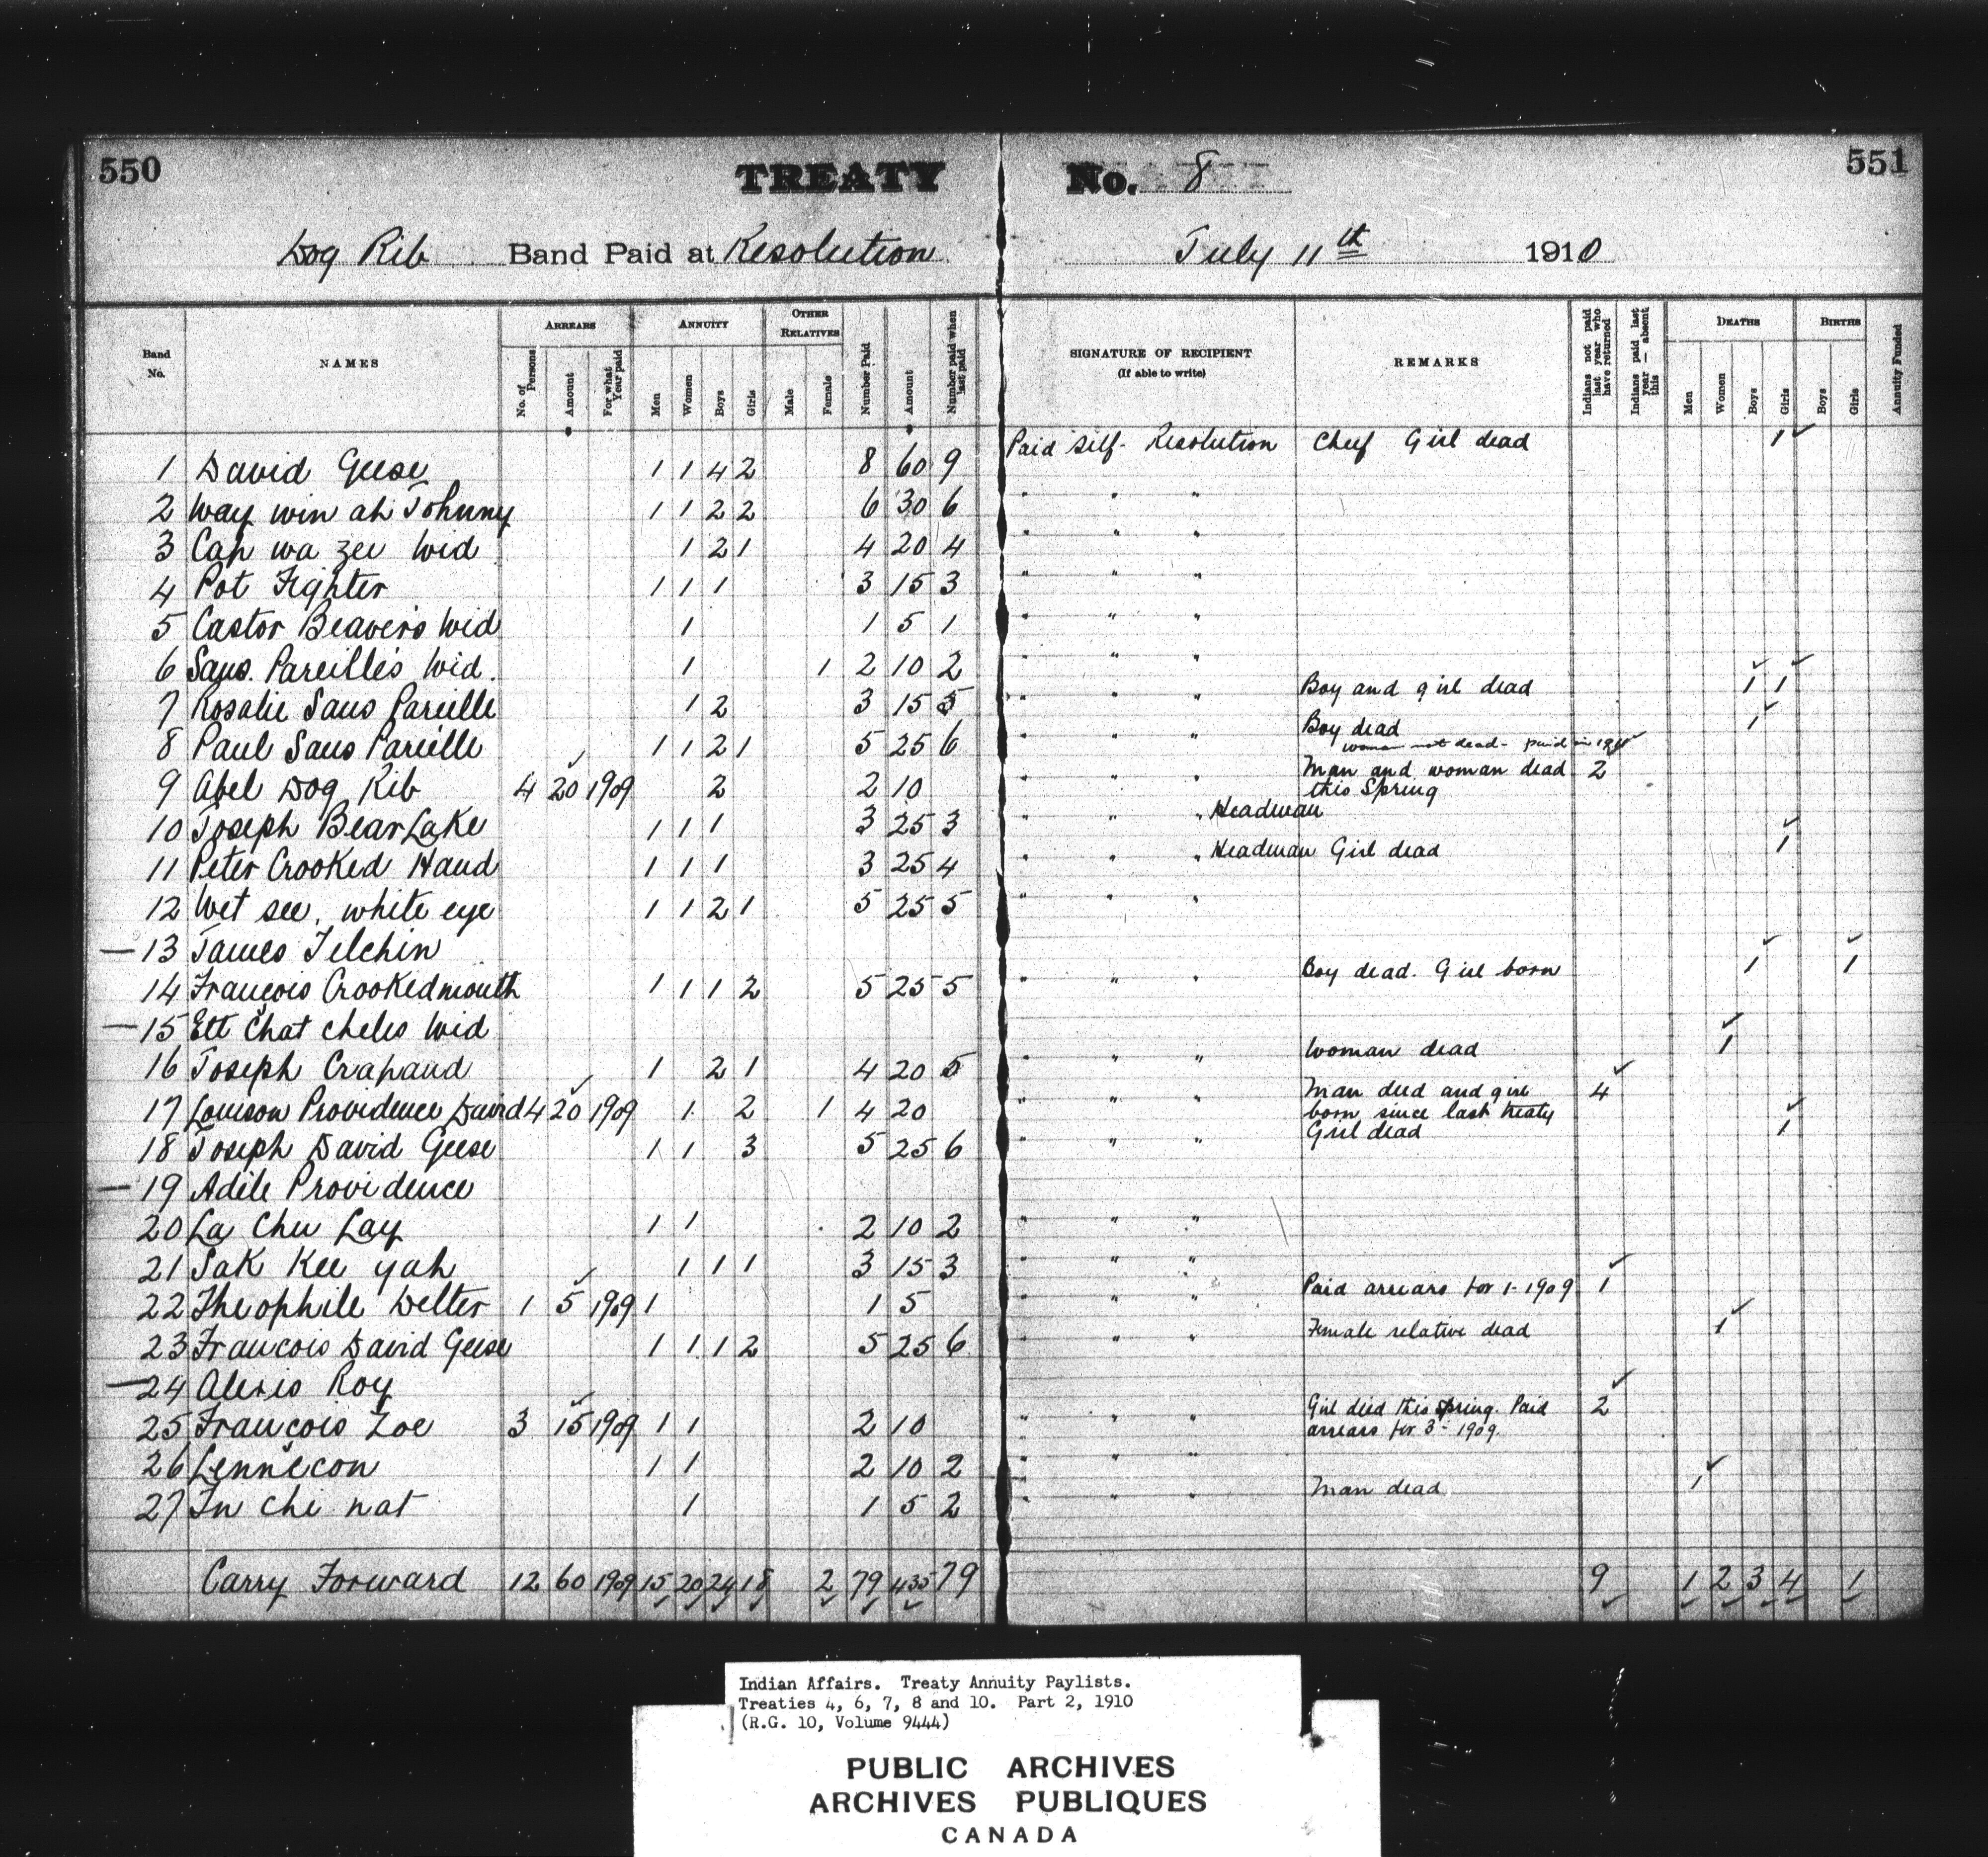 550 TREATY No. 8 551
Dog Rib Band Paid at Resolution July 11th 1910
Band No. NAMES ARREARS ANNUITY OTHER RELATIVES Number Paid Amount Number paid when last paid SIGNATURE OF RECIPIENT (If able to write) REMARKS Indians not paid last year who have returned Indians paid last year — absent this DEATHS BIRTHS Annuity Funded
No. of Persons Amount For what Year paid Men Women Boys Girls Male Female Men Women Boys Girls Boys Girls
1 David Geese 1 1 4 2 8 60 9 Paid self - Resolution Cheif Girl dead 1
2 Way win ah Johnny 1 1 2 2 6 30 6 " " "
3 Cah wa zee Wid 1 2 1 4 20 4 " " "
4 Pot Fighter 1 1 1 3 15 3 " " "
5 Castor Beavers Wid 1 1 5 1 " " "
6 Sans. Pareille's Wid. 1 1 2 10 2 " " "
7 Rosalie Sans Pareille 1 2 3 15 5 " " " Boy and girl dead 1 1
8 Paul Sans Pareille 1 1 2 1 5 25 6 " " " Boy dead 1
woman not dead - paid in
9 Abel Dog Rib 4 20 1909 2 2 10 " " " Man and woman dead 2
this Spring
10 Joseph Bear Lake 1 1 1 3 25 3 " " " Headman
11 Peter Crooked Hand 1 1 1 3 25 4 " " " Headman Girl dead 1
12 Wet see, white eye 1 1 2 1 5 25 5 " " "
— 13 James Telchin
14 François Crookedmouth 1 1 1 2 5 25 5 " " " Boy dead. Girl born 1 1
— 15 Ett Chat cheles Wid
16 Joseph Crapaud 1 2 1 4 20 5 " " " Woman dead 1
17 Louison Providence David 4 20 1909 1 2 1 4 20 " " " Man died and girl 4
born since last treaty
18 Joseph David Geese 1 1 3 5 25 6 " " " Girl dead 1
— 19 Adile Providence
20 La Chu Lay 1 1 2 10 2 " " "
21 Sak Kee yah 1 1 1 3 15 3 " " "
22 Theophile Delter 1 5 1909 1 1 5 " " " Paid arrears for 1 - 1909 1
23 Francois David Geese 1 1 1 2 5 25 6 " " " Female relative dead 1
— 24 Alexis Roy
25 François Zoe 3 15 1909 1 1 2 10 " " " Girl died this spring. Paid 2
arrears for 3 - 1909.
26 Lennecon 1 1 2 10 2 " " "
27 In chi nat 1 1 5 2 " " " Man dead 1
Carry Forward 12 60 1909 15 20 24 18 2 79 435 79 9 1 2 3 4 1
Indian Affairs. Treaty Annuity Paylists.
Treaties 4, 6, 7, 8 and 10. Part 2, 1910
(R.G. 10, Volume 9444)
PUBLIC ARCHIVES
ARCHIVES PUBLIQUES
CANADA